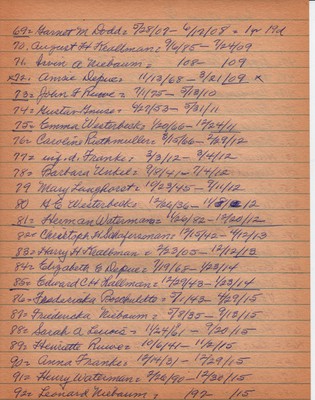 69= Harriet M. Dodd= 5/28/07- 6/17/08 = 1yr 19d
70. August H Reallman= 9/6/85- 7/24/09
71. Irvin A Niebaum= 108- 109
x72= Annie Depue= 11/13/68- 3/21/09 x
73= John F Ruwe= 7/1/25- 2/13/10
74= Gustav Gruse= 9/27/53- 5/31/11
75= Emma Westerbeck= 1/20/66- 12/24/11
76= Caroline Ruthmuller= 3/15/66- 2/29/12
77= inf. d. Franke= 3/3/12- 3/4/12
78= Barbara Unkel= 9/8/41- 7/4/12
79 Mary Langhorst= 10/23/45- 9/11/12
80 H.C. Westerbeck= 12/26/36- 12
81= Herman Waterman= 4/26/82- 12/20/12
82= Christoph H. Schafersman= 10/15/42- 9/12/13
83= Harry H Reallman= 2/23/05- 12/12/13
84= Elizabeth E Depue= 1/19/68- 1/23/14
85= Edward C H Hallman= 12/29/43- 1/23/14
86= Fredericka Poschultte= 43- 4/29/15
87= Fredericka Niebaum= 7/5/35- 9/12/15
88= Sarah A Lewis= 11/24/61- 9/20/15
89= Henriette Ruwe= 10/6/41- 11/2/15
90= Anna Franke= 12/14/31- 12/29/15
91= Harry Waterman= 2/26/90- 12/30/15
92= Leonard Niebaum= 192 /15